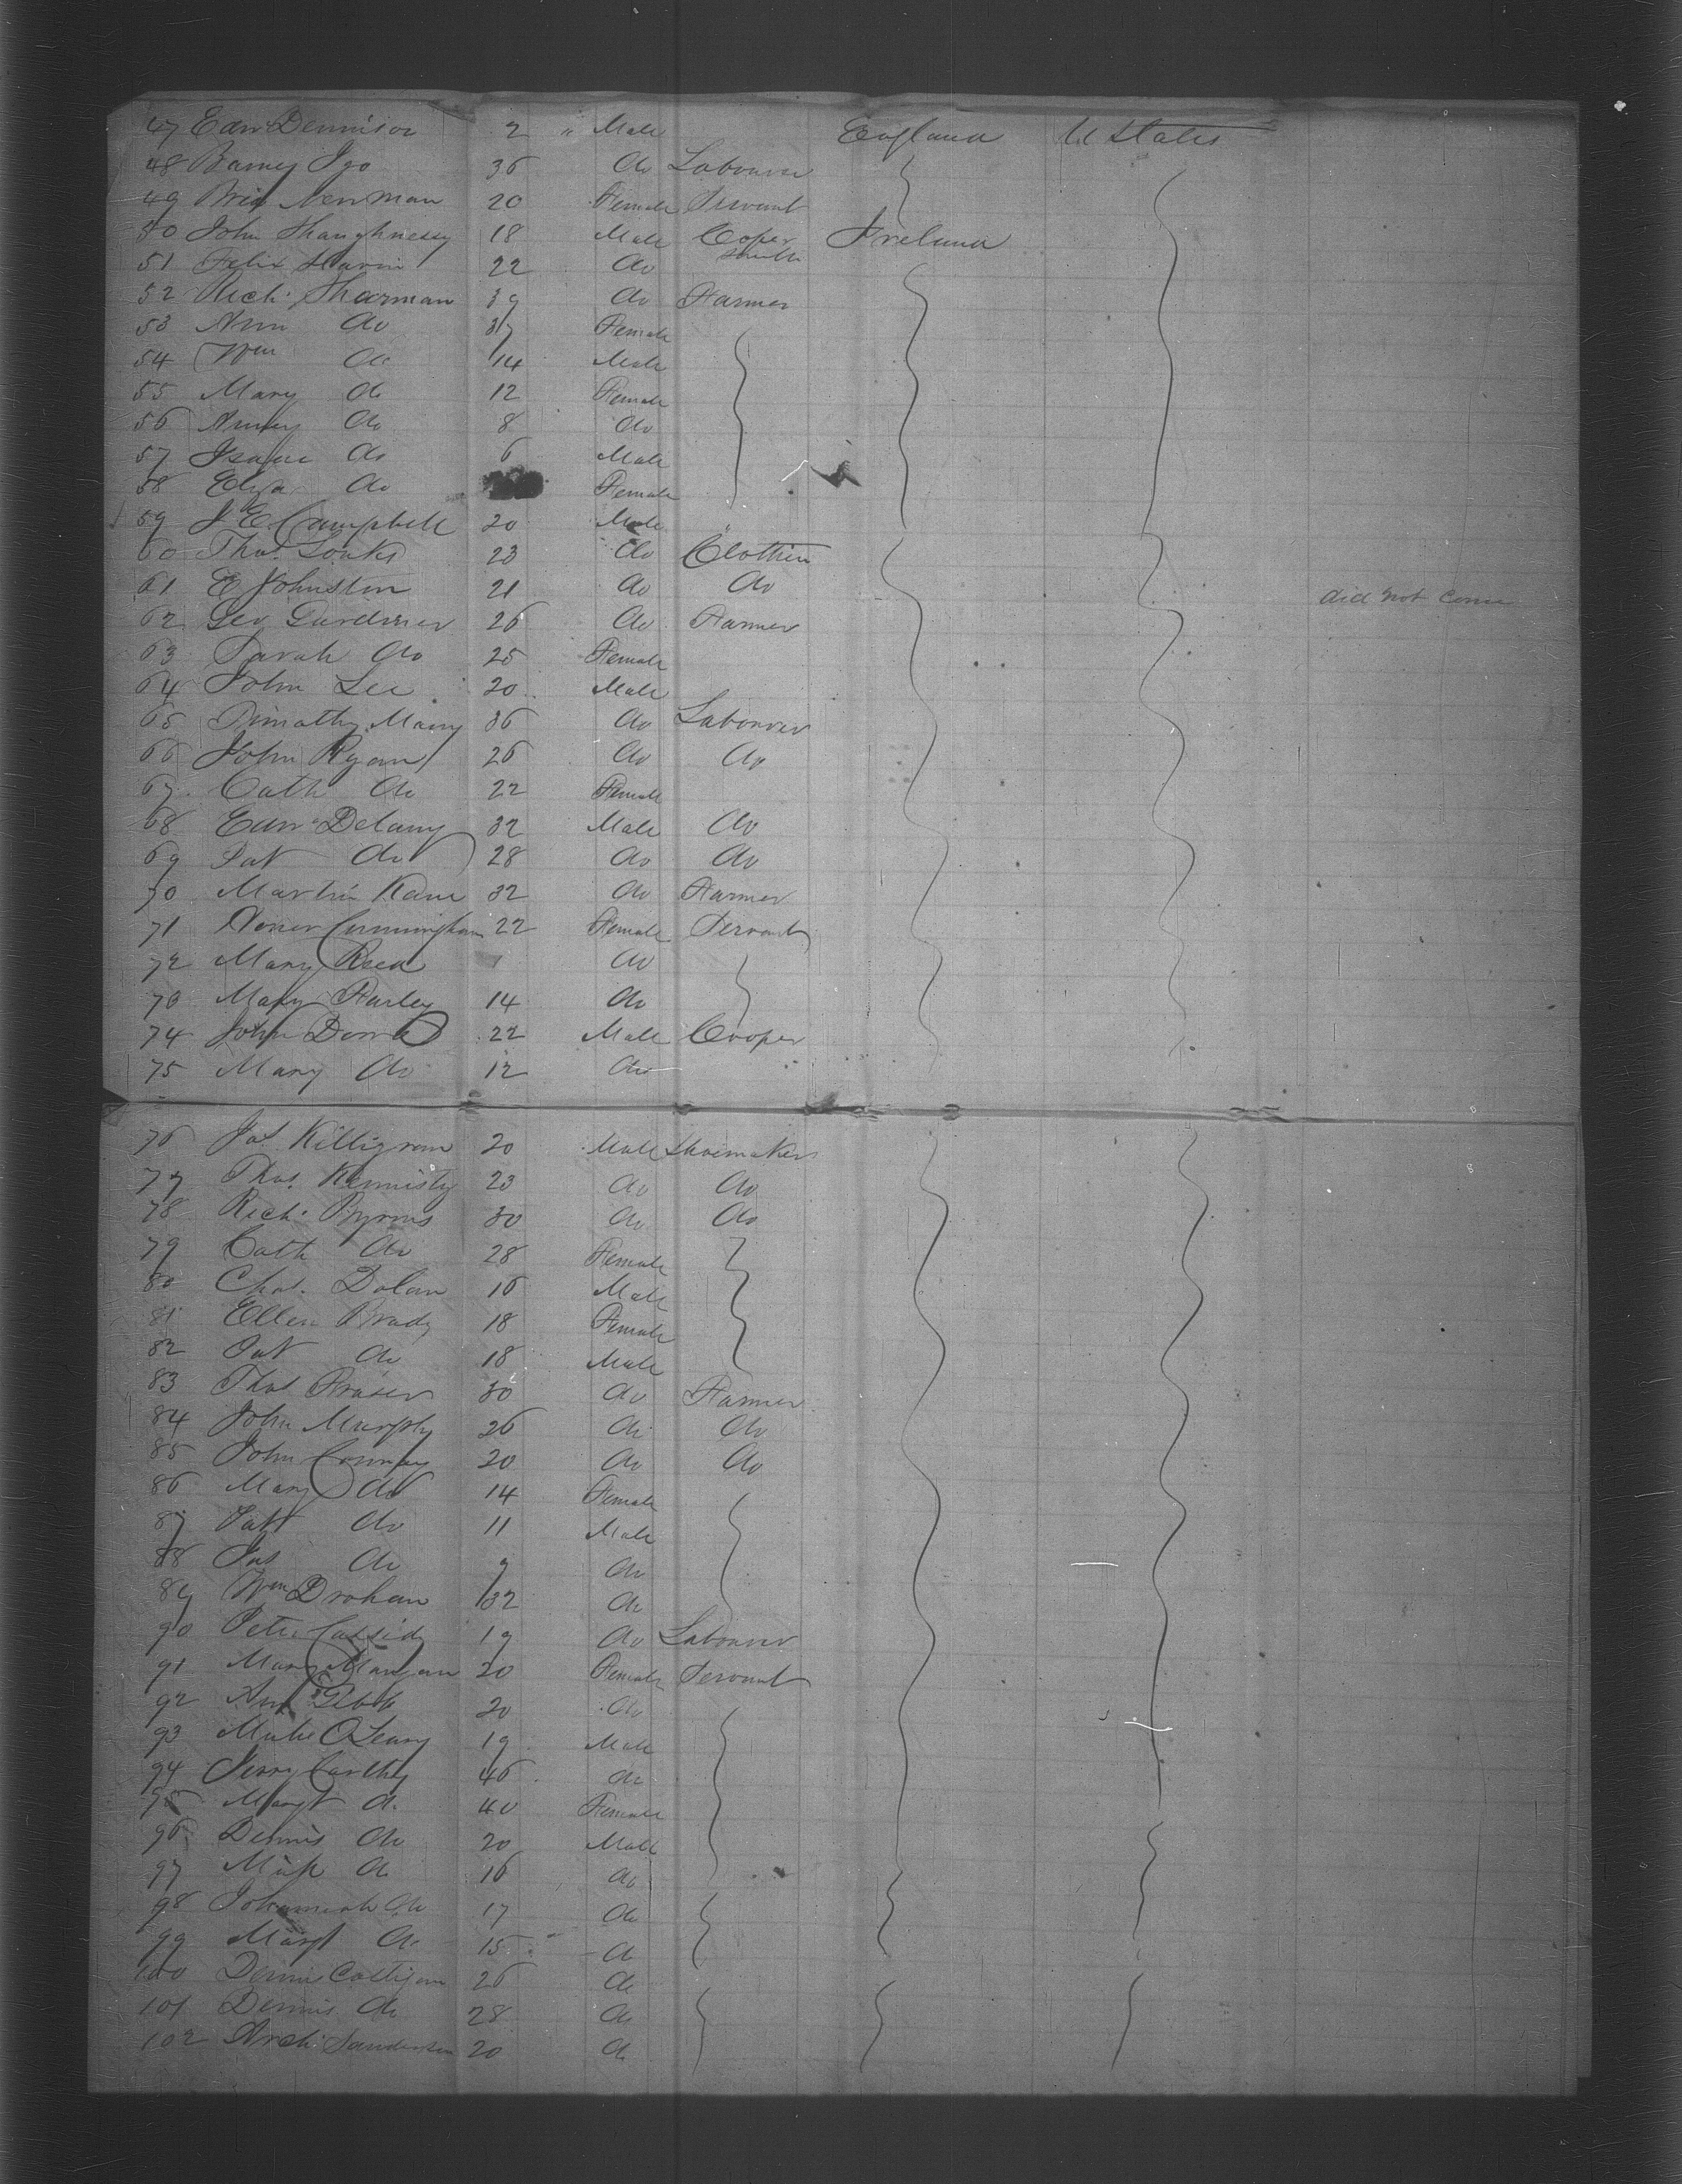 47 Edwd Dennison 2 " Male England U States
48 Barney Igo 36 do Labourer
49 Brid Newman 20 Female Servant
50 John Shaughnessy 18 Male Coper Ireland
51 Felix Slavin 22 do Smith
52 Richd Sharman 39 do Farmer
53 Ann do 37 Female
54 Wm do 14 Male
55 Mary do 12 Female
56 do 8 do
57 Isaac do 6 Male
58 Eliza do Female
59 J E Campbell 20 Male "
60 Thos 23 do Clothier
61 E Johnston 21 do do did not come
62 Geo Gardiner 26 do Farmer
63 Sarah do 25 Female
64 John Lee 20 Male
65 Timothy 36 do Labourer
66 John Ryan 26 do do
67 Cath do 22 Female
68 Edwd Delany 32 Male do
69 Pat do 28 do do
70 Martin Kane 32 do Farmer
71 Cunningham 22 Female Servant
72 Mary Reed do
73 Mary Farley 14 do
74 John 22 Male Cooper
75 Mary do 12 do
76 Jas Killigrom 20 Male Shoemakers
77 Thos 23 do do
78 Richd Byrons 30 do do
79 Cath do 28 Female
80 Chas. Dolan 16 Male
81 Ellen Brady 18 Female
82 Pat do 18 Male
83 Thos Fraser 30 do Farmer
84 John Murphy 26 do do
85 John 20 do do
86 Mary do 14 Female
87 Patk do 11 Male
88 Jas do 9 do
89 Wm Drohan 32 do
90 Peter Cassidy 19 do Labourer
91 Mary Mangan 20 Female Servant
92 Ann 20 do
93 O Leary 19 Male
94 Jerry Carthy 46 do
95 Margt do 40 Female
96 Dennis do 20 Male
97 do 16 do
98 do 17 do
99 Margt do 15 do
100 Dennis 26 do
101 Dennis do 28 do
102 Archd Sanderson 20 do